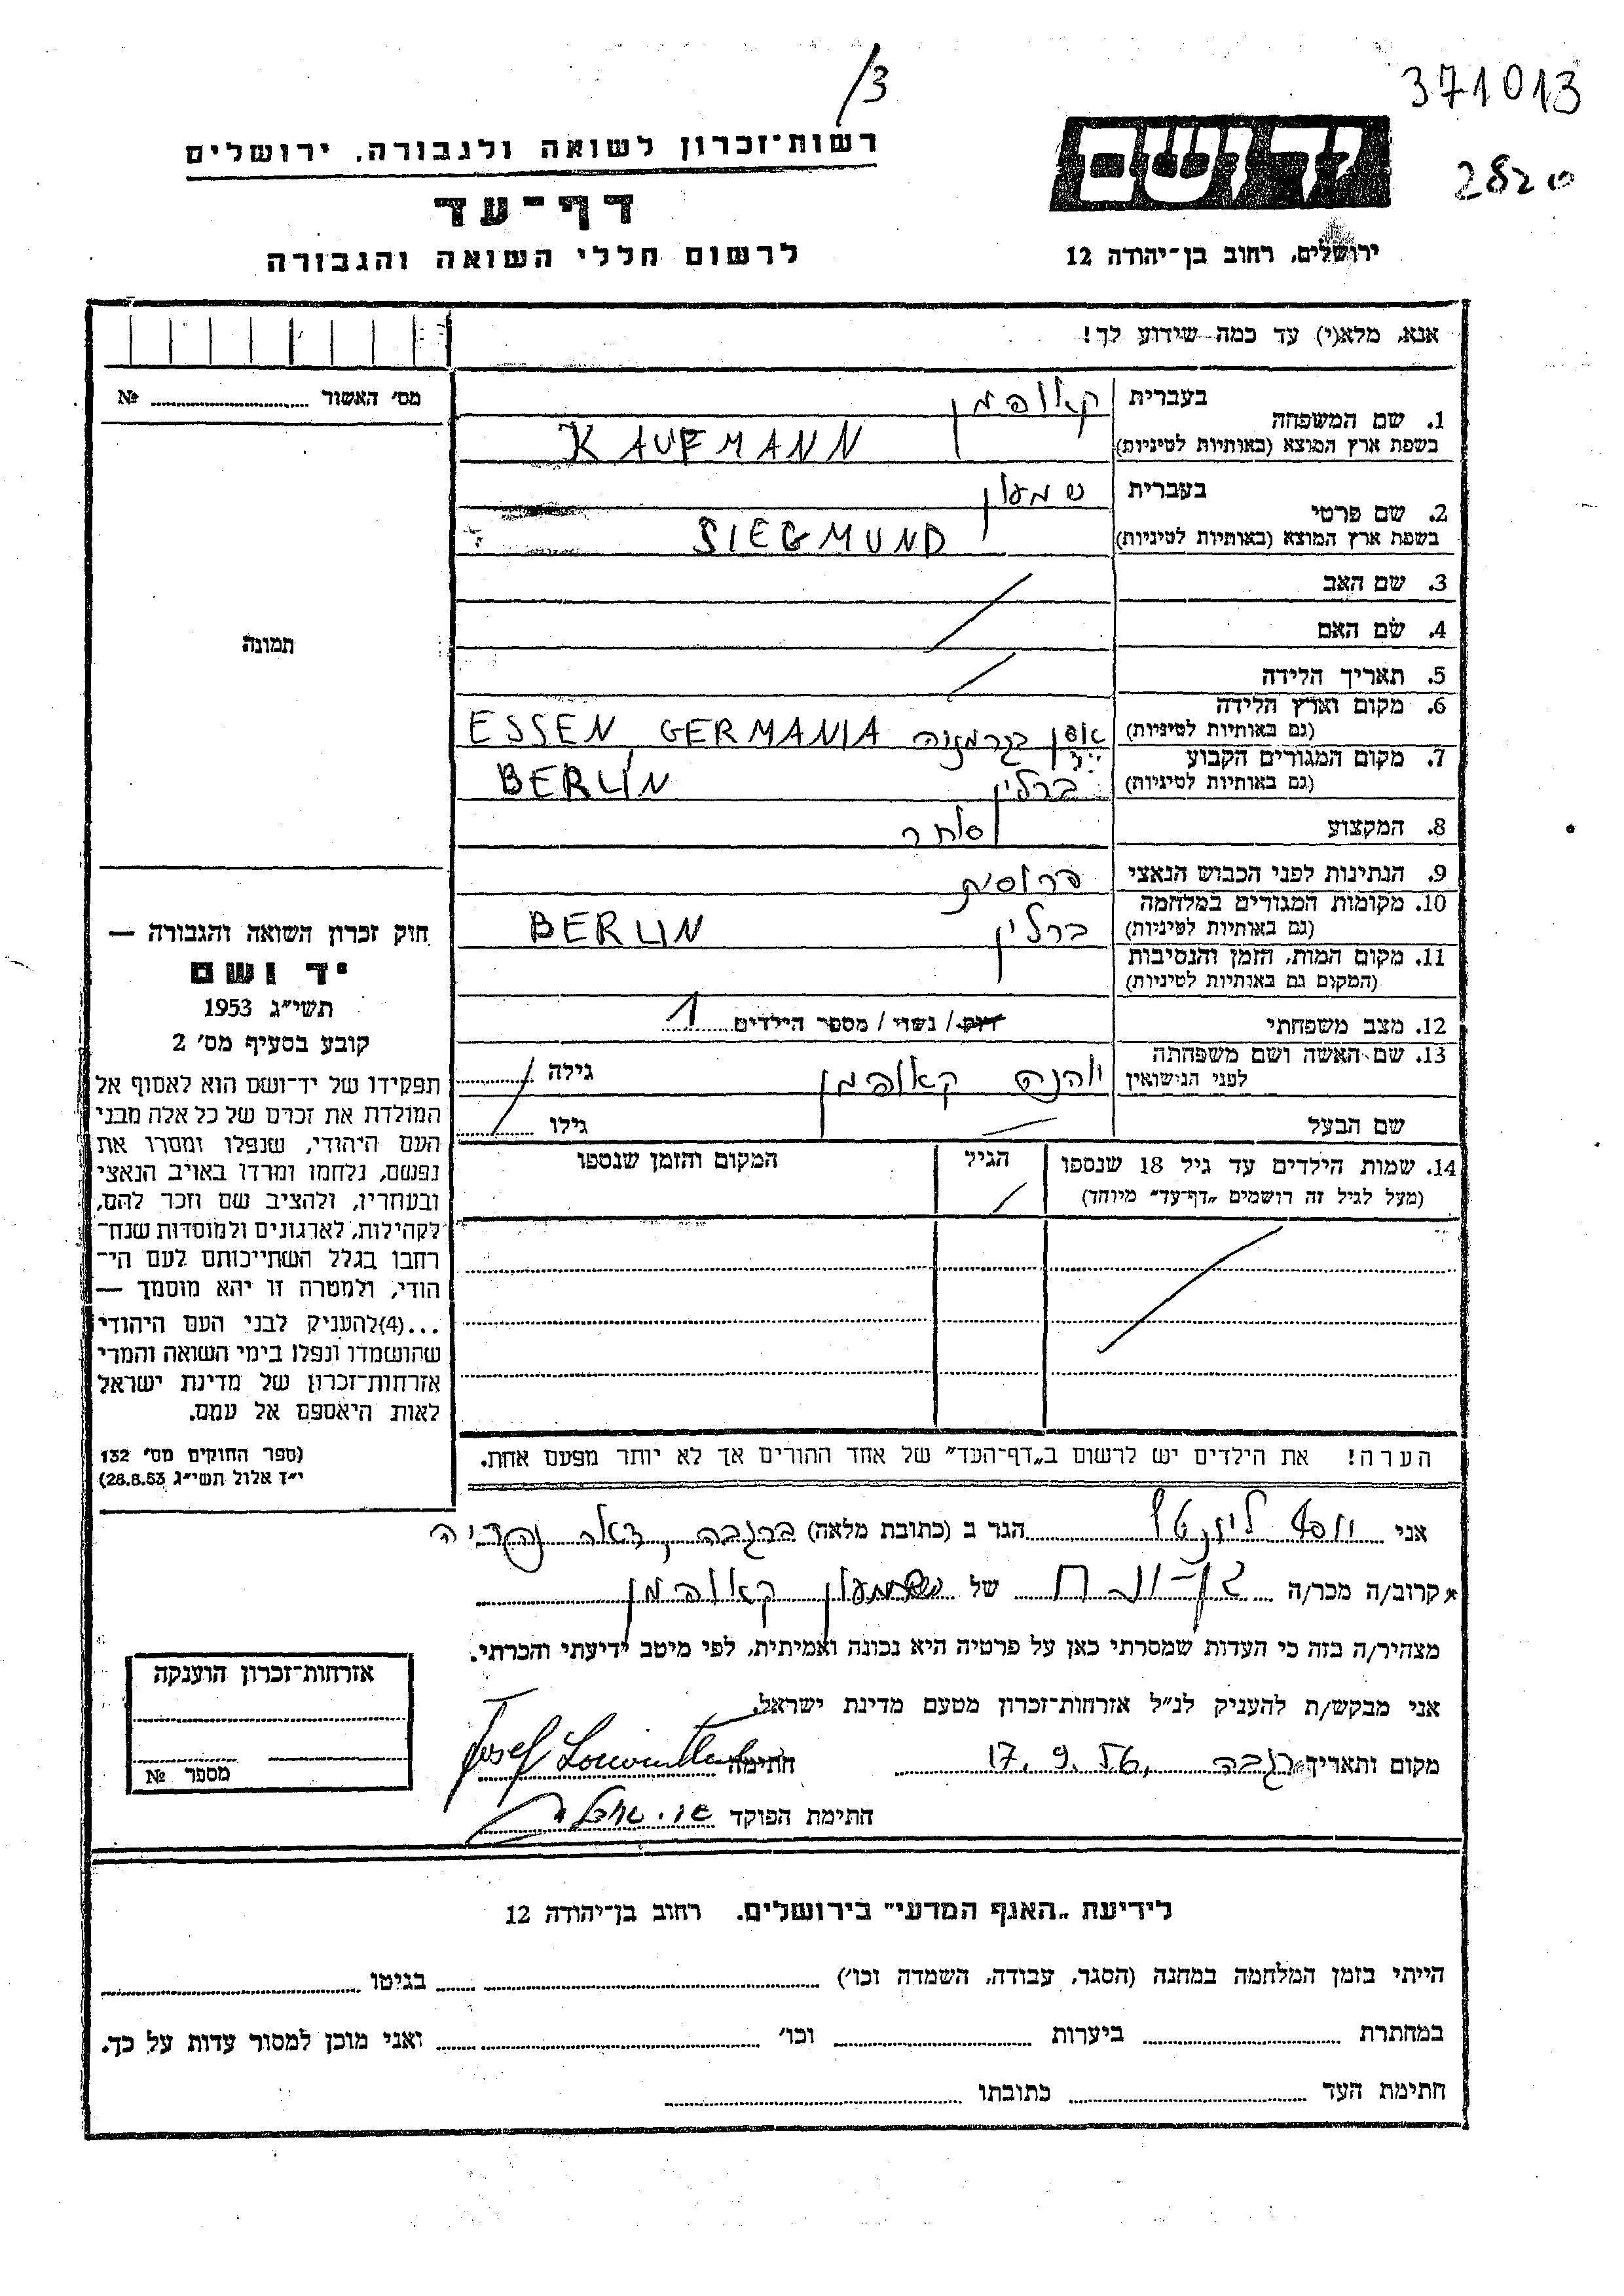 /3
371013
רשות־זכרון לשואה ולגבורה, ירושלים
יד ושם
2820
דף־עד
לרשום חללי השואה והגבורה
ירושלים, רחוב בן־יהודה 12
אנא, מלא(י) עד כמה שידוע לך!
מס׳ האשור № 
תמונה
1. שם המשפחה
בעברית קאופמן
בשפת ארץ המוצא (באותיות לטיניות) KAUFMANN
2. שם פרטי
בעברית שמעון
בשפת ארץ המוצא (באותיות לטיניות) SIEGMUND
3. שם האב
4. שם האם
5. תאריך הלידה
6. מקום וארץ הלידה
(גם באותיות לטיניות) אסן בגרמניה ESSEN, GERMANIA
7. מקום המגורים הקבוע
(גם באותיות לטיניות) ברלין BERLIN
8. המקצוע סוחר
9. הנתינות לפני הכבוש הנאצי פרוסית
10. מקומות המגורים במלחמה
(גם באותיות לטיניות) ברלין BERLIN
11. מקום המות, הזמן והנסיבות
(המקום גם באותיות לטיניות)
12. מצב משפחתי רווק / נשוי / מספר הילדים 1
13. שם האשה ושם משפחתה
לפני הנישואין קאופמן גילה
שם הבעל גילו
14. שמות הילדים עד גיל 18 שנספו
(מעל לגיל זה רושמים „דף־עד" מיוחד)
הגיל
המקום והזמן שנספו
חוק זכרון השואה והגבורה —
יד ושם
תשי״ג 1953
קובע בסעיף מס׳ 2
תפקידו של יד־ושם הוא לאסוף אל
המולדת את זכרם של כל אלה מבני
העם היהודי, שנפלו ומסרו את
נפשם, נלחמו ומרדו באויב הנאצי
ובעוזריו, ולהציב שם וזכר להם,
לקהילות, לארגונים ולמוסדות שנח־
רבו בגלל השתייכותם לעם הי־
הודי, ולמטרה זו יהא מוסמך —
...(4)להעניק לבני העם היהודי
שהושמדו ונפלו בימי השואה והמרי
אזרחות־זכרון של מדינת ישראל
לאות היאספם אל עמם.
(ספר החוקים מס׳ 132
י״ז אלול תשי״ג 28.8.53)
הערה! את הילדים יש לרשום ב„דף־העד" של אחד ההורים אך לא יותר מפעם אחת.
אני יוסף הגר ב (כתובת מלאה) ברגבה, דאר נהריה
* קרוב/ה מכר/ה של שמעון קאופמן
מצהיר/ה בזה כי העדות שמסרתי כאן על פרטיה היא נכונה ואמיתית, לפי מיטב ידיעתי והכרתי.
אני מבקש/ת להעניק לנ״ל אזרחות־זכרון מטעם מדינת ישראל.
מקום ותאריך רגבה, 17.9.56 חתימה Josef
חתימת הפוקד
אזרחות־זכרון הוענקה
מספר №
לידיעת „האגף המדעי" בירושלים, רחוב בן־יהודה 12
הייתי בזמן המלחמה במחנה (הסגר, עבודה, השמדה וכו׳) בגיטו
במחתרת ביערות וכו׳ ואני מוכן למסור עדות על כך.
חתימת העד כתובתו